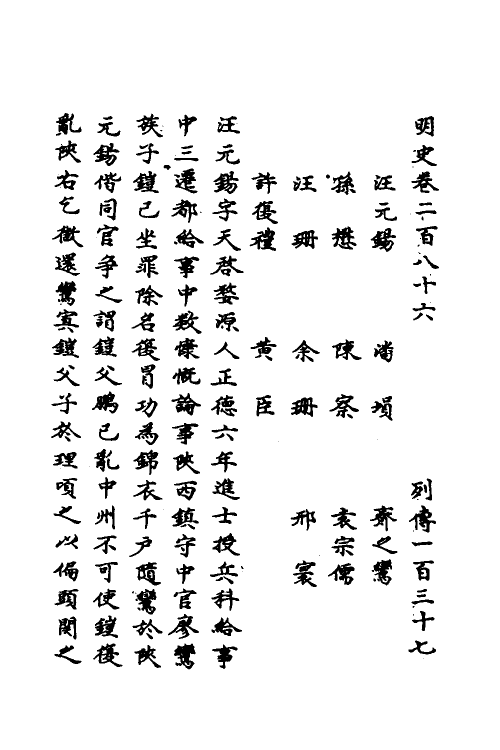 明史卷二百八十六 列傳一百三十七
汪元錫 潘塤 齊之鸞
孫懋 陳察 袁宗儒
汪珊 余珊 邢寰
許復禮 黃臣
汪元錫字天啓婺源人正德六年進士授兵科給事
中三遷都給事中數慷慨論事陝西鎮守中官廖鸞
族子鎧已坐罪除名復冒功為錦衣千戶隨鸞於陝
元錫偕同官争之謂鎧父鵬已亂中州不可使鎧復
亂陝右乞徵還鸞寘鎧父子於理頃之以偏頭關之